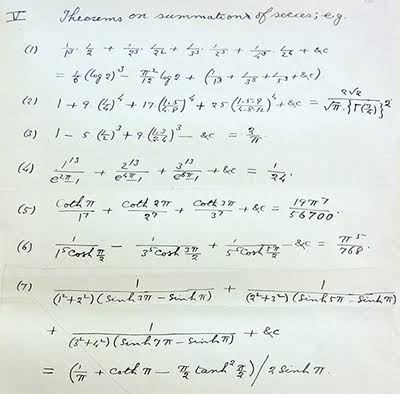 V Theorems on summations of series; e.g.
(1) 1/1³ · 1/2 + 1/2³ · 1/2² + 1/3³ · 1/2³ + 1/4³ · 1/2⁴ + &c
= 1/6 (log 2)³ − π²/12 log 2 + (1/1³ + 1/3³ + 1/5³ + &c).
(2) 1 + 9·(1/4)⁴ + 17·(1·5/4·8)⁴ + 25·(1·5·9/4·8·12)⁴ + &c = 2√2/√π·{Γ(3/4)}²
(3) 1 − 5·(1/2)³ + 9·(1·3/2·4)³ − &c = 2/π.
(4) 1¹³/(e^2π−1) + 2¹³/(e^4π−1) + 3¹³/(e^6π−1) + &c = 1/24.
(5) coth π/1⁷ + coth 2π/2⁷ + coth 3π/3⁷ + &c = 19π⁷/56700.
(6) 1/(1⁵ cosh π/2) − 1/(3⁵ cosh 3π/2) + 1/(5⁵ cosh 5π/2) − &c = π⁵/768.
(7) 1/((1²+2²)(sinh 3π − sinh π)) + 1/((2²+3²)(sinh 5π − sinh π))
+ 1/((3²+4²)(sinh 7π − sinh π)) + &c
= (1/π + coth π − π/2 tanh² π/2)/2 sinh π.